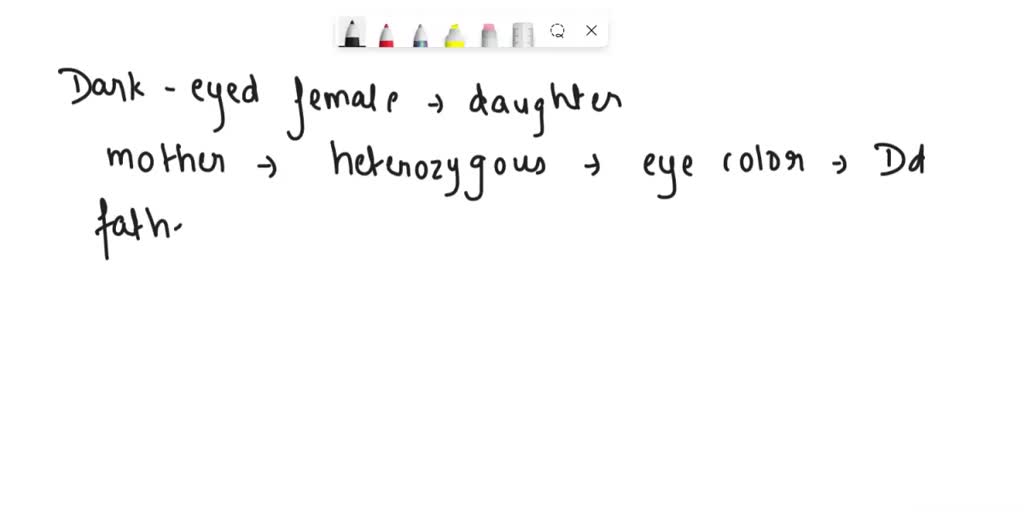 Dark - eyed female → daughter
mother → heterozygous → eye color → Dd
fath